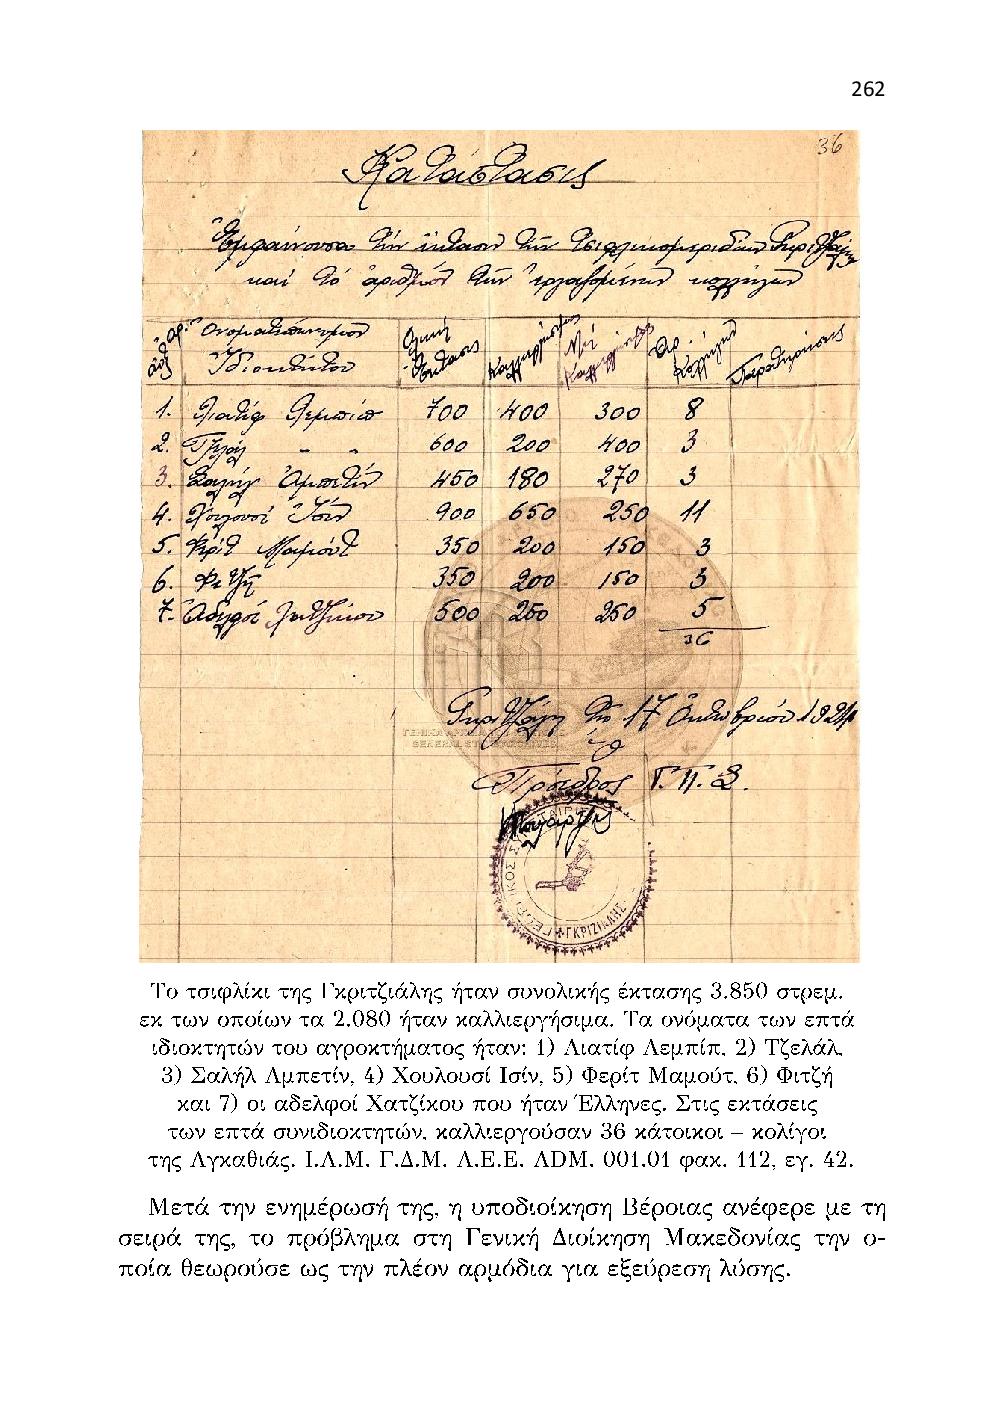 262
36
Κατάστασις
Ἐμφαίνουσα τὴν ἔκτασιν τῶν τσιφλικομεριδίων Γκριτζάλης
καὶ τὸ ἀριθμὸν τῶν ἐργαζομένων κολλήγων
Αρ. Ὀνοματεπώνυμον Ὁλικὴ Καλλιεργήσιμος Μὴ Αρ. Παρατηρήσεις
αὐξ Ἰδιοκτήτου ἔκτασις Καλλιεργήσιμος Κολλήγων
1. Λιατίφ Λεμπίπ 700 400 300 8
2. Τζελάλ - - 600 200 400 3
3. Σαλήχ Ἀμπετίν 450 180 270 3
4. Χουλουσί Ἰσίν 900 650 250 11
5. Φερίτ Μαμούτ 350 200 150 3
6. Φιτζή 350 200 150 3
7. Ἀδελφοί Χατζίκου 500 250 250 5
36
Γκριτζάλη τῇ 17 Ὀκτωβρίου 1924
Ὁ
Πρόεδρος Γ.Π.Σ.
ΓΚΡΙΖΙΑΛΗΣ
Το τσιφλίκι της Γκριτζιάλης ήταν συνολικής έκτασης 3.850 στρεμ.
εκ των οποίων τα 2.080 ήταν καλλιεργήσιμα. Τα ονόματα των επτά
ιδιοκτητών του αγροκτήματος ήταν: 1) Λιατίφ Λεμπίπ, 2) Τζελάλ,
3) Σαλήλ Αμπετίν, 4) Χουλουσί Ισίν, 5) Φερίτ Μαμούτ, 6) Φιτζή
και 7) οι αδελφοί Χατζίκου που ήταν Έλληνες. Στις εκτάσεις
των επτά συνιδιοκτητών, καλλιεργούσαν 36 κάτοικοι – κολίγοι
της Αγκαθιάς. Ι.Α.Μ. Γ.Δ.Μ. Α.Ε.Ε. ADM. 001.01 φακ. 112, εγ. 42.
Μετά την ενημέρωσή της, η υποδιοίκηση Βέροιας ανέφερε με τη
σειρά της, το πρόβλημα στη Γενική Διοίκηση Μακεδονίας την ο-
ποία θεωρούσε ως την πλέον αρμόδια για εξεύρεση λύσης.